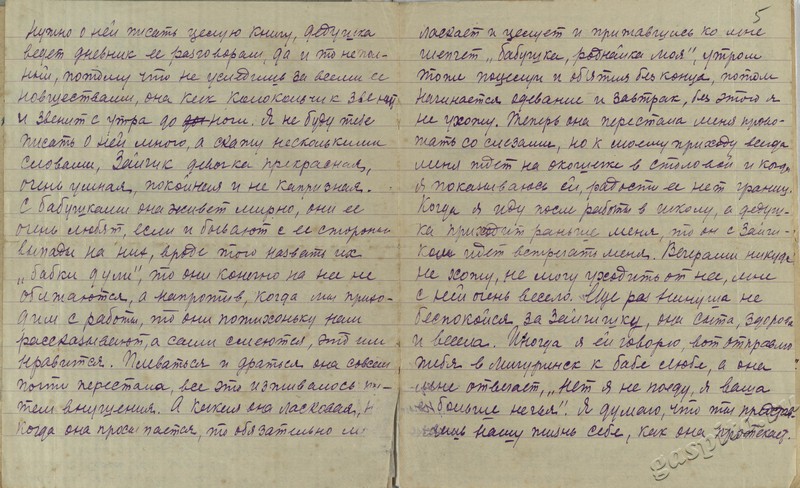 Нужно о ней писать целую книгу, дедушка
ведет дневник ее разговорам, да и то непол-
ный, потому что не уследишь за всеми ее
новшествами, она как колокольчик звенит
и звенит с утра до ночи. Я не буду тебе
писать о ней много, а скажу несколькими
словами, Зайчик девочка прекрасная,
очень умная, покойная и не капризная.
С бабушками она живет мирно, они ее
очень любят, если и бывают с ее стороны
выпады на них, вроде того назвать их
„бабки дуры", то они конечно на нее не
обижаются, а напротив, когда мы прихо-
дим с работы, то они потихоньку нам
рассказывают, а сами смеются, это им
нравится. Плеваться и драться она совсем
почти перестала, все это изживалось пу-
тем внушения. А какая она ласковая,
Когда она просыпается, то обязательно
5
ласкает и целует и прижавшись ко мне
шепчет „бабушка, роднайка моя", утром
тоже поцелуи и объятия без конца, потом
начинается одевание и завтрак, без этого я
не ухожу. Теперь она перестала меня прово-
жать со слезами, но к моему приходу всегда
меня ждет на окошке в столовой и когда
я показываюсь ей, радости ее нет границ.
Когда я иду после работы в школу, а дедуш-
ка приходит раньше меня, то он с Зайчи-
ком идет встречать меня. Вечерами никуда
не хожу, не могу уходить от нее, мне
с ней очень весело. Еще раз Нинуша не
беспокойся за Зайчишку, она сыта, здорова
и весела. Иногда я ей говорю, вот отправлю
тебя в Мичуринск к бабе Любе, а она
мне отвечает, „Нет я не поеду, я ваша
и больше ничья". Я думаю, что ты представ-
ляешь нашу жизнь себе, как она протекает.